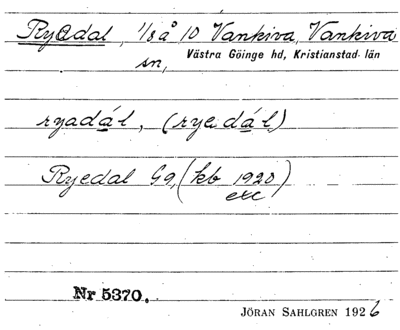 Ryedal, 1/8 å 10 Vankiva, Vankiva
sn, Västra Göinge hd, Kristianstad län
ryadál, (ryedál)
Ryedal G9, (kb 1920)
exc
Nr 5370.
JÖRAN SAHLGREN 1926